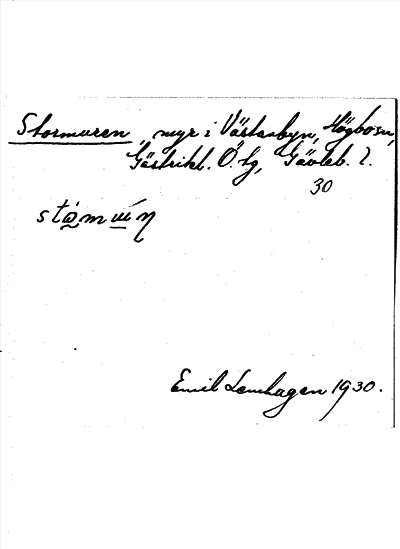 Stormuren, myr i Västanbyn, Högbo sn,
Gästrikl. Ö. tg, Gävleb. l.
30
Emil Lemhagen 1930.